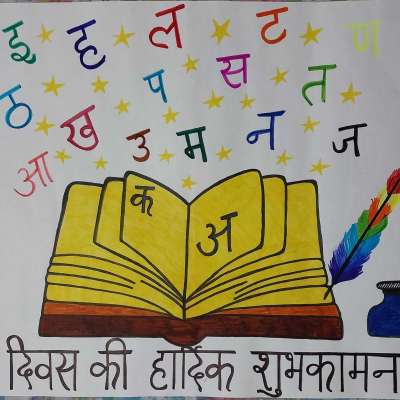 इ ह ल ट ण
ठ प स त
ख उ म न ज
आ
क अ
दिवस की हार्दिक शुभकामन